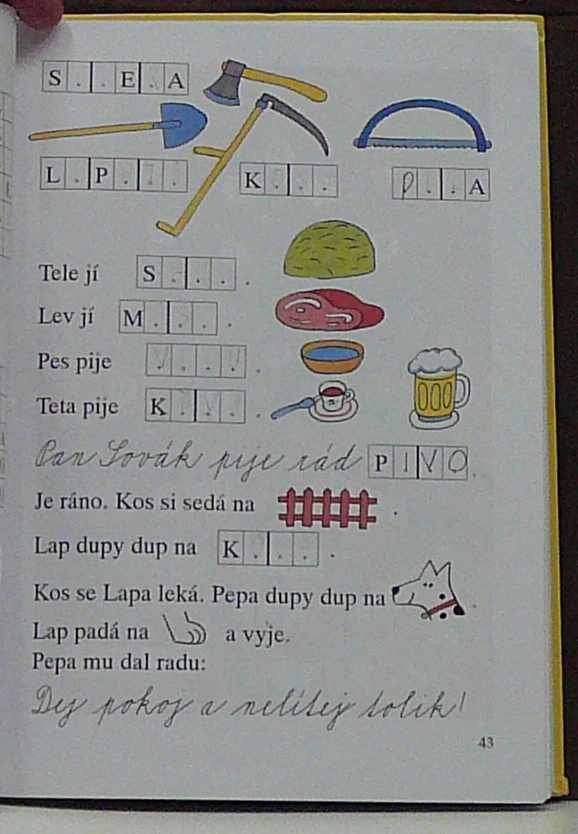 S . . E . A
L . P . . .
K . . .
P . . A
Tele jí S . . . .
Lev jí M . . . .
Pes pije . . . . .
Teta pije K . . . .
Pan Sovák pije rád PIVO.
Je ráno. Kos si sedá na .
Lap dupy dup na K . . . .
Kos se Lapa leká. Pepa dupy dup na .
Lap padá na a vyje.
Pepa mu dal radu:
Dej pokoj a nelítej tolik!
43